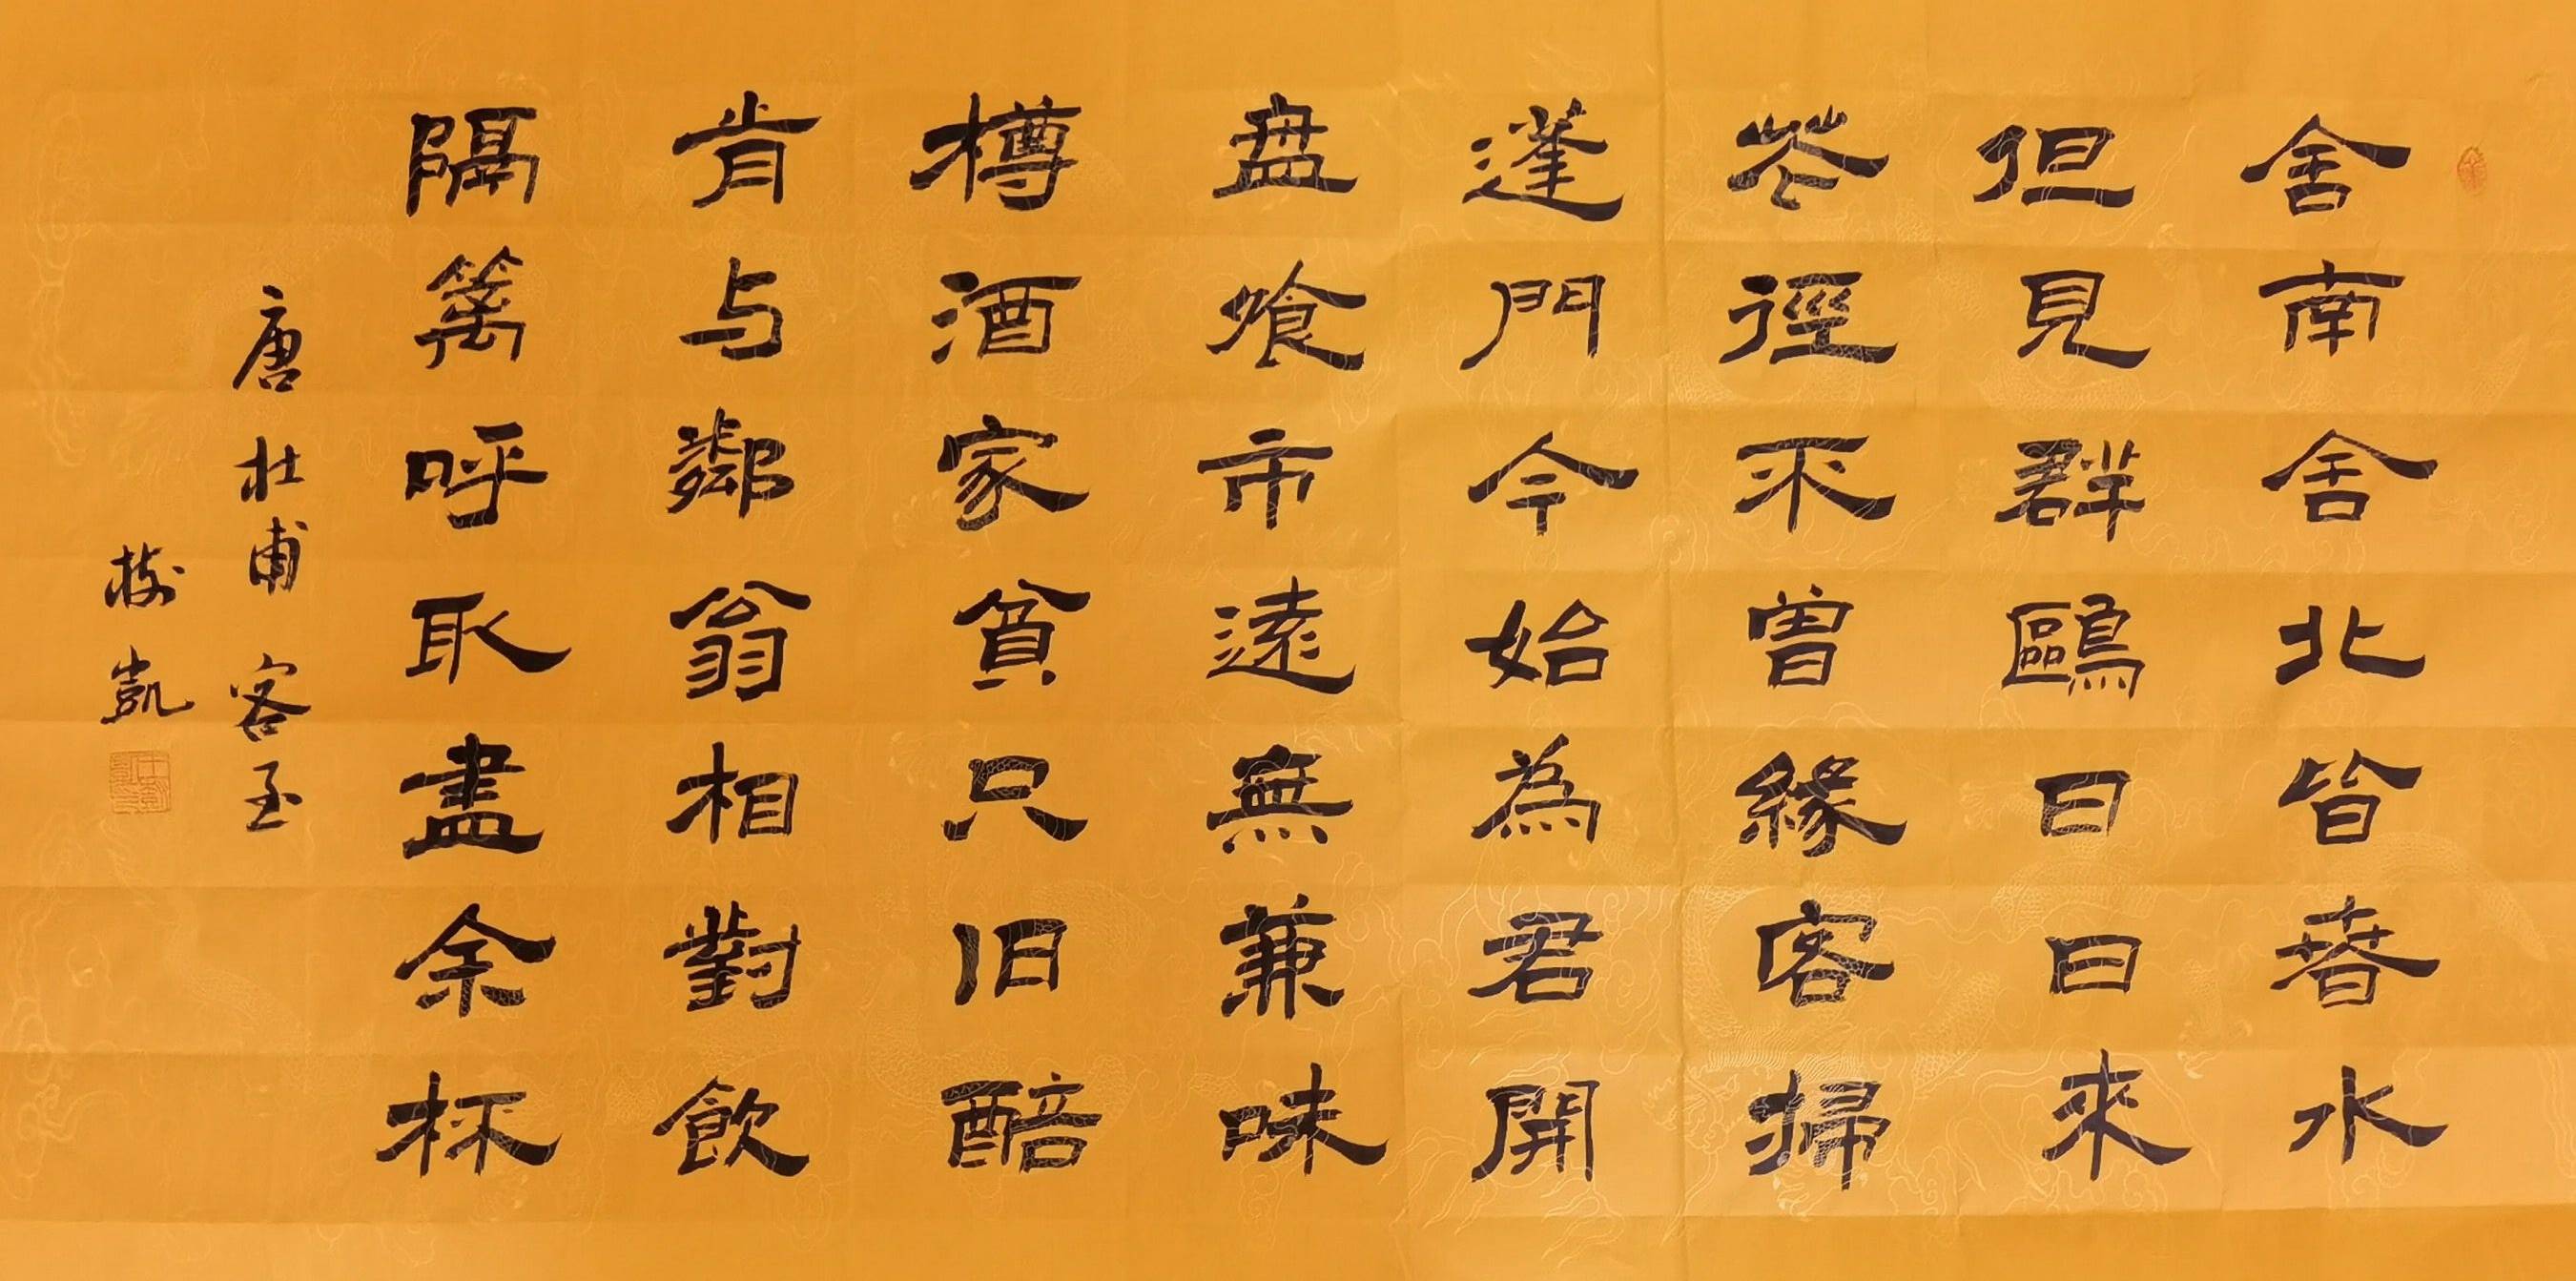 舍南舍北皆春水
但見群鷗日日來
花徑不曾緣客掃
蓬門今始為君開
盘飧市遠無兼味
樽酒家貧只旧醅
肯与鄰翁相對飲
隔篱呼取盡余杯
唐杜甫客至
树凱